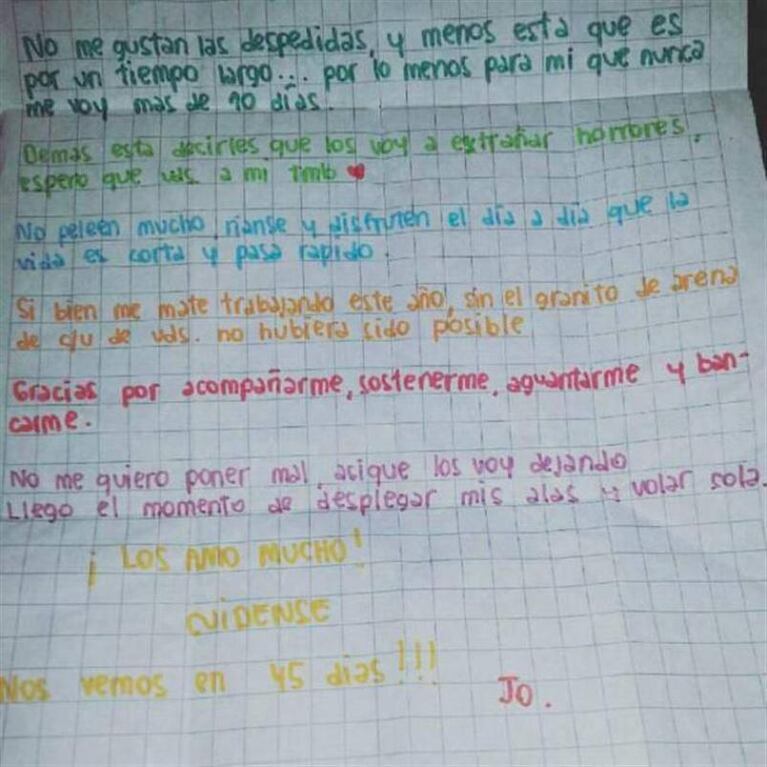 No me gustan las despedidas, y menos esta que es
por un tiempo largo... por lo menos para mi que nunca
me voy mas de 10 días.
Demas esta decirles que los voy a extrañar horrores,
espero que uds a mi tmb ♥
No peleen mucho, rianse y disfruten el día a día que la
vida es corta y pasa rapido.
Si bien me mate trabajando este año, sin el granito de arena
de c/u de uds. no hubiera sido posible
Gracias por acompañarme, sostenerme, aguantarme y ban-
carme.
No me quiero poner mal, asique los voy dejando
Llego el momento de desplegar mis alas y volar sola.
¡ LOS AMO MUCHO!
CUIDENSE
Nos vemos en 45 dias!!!
Jo.